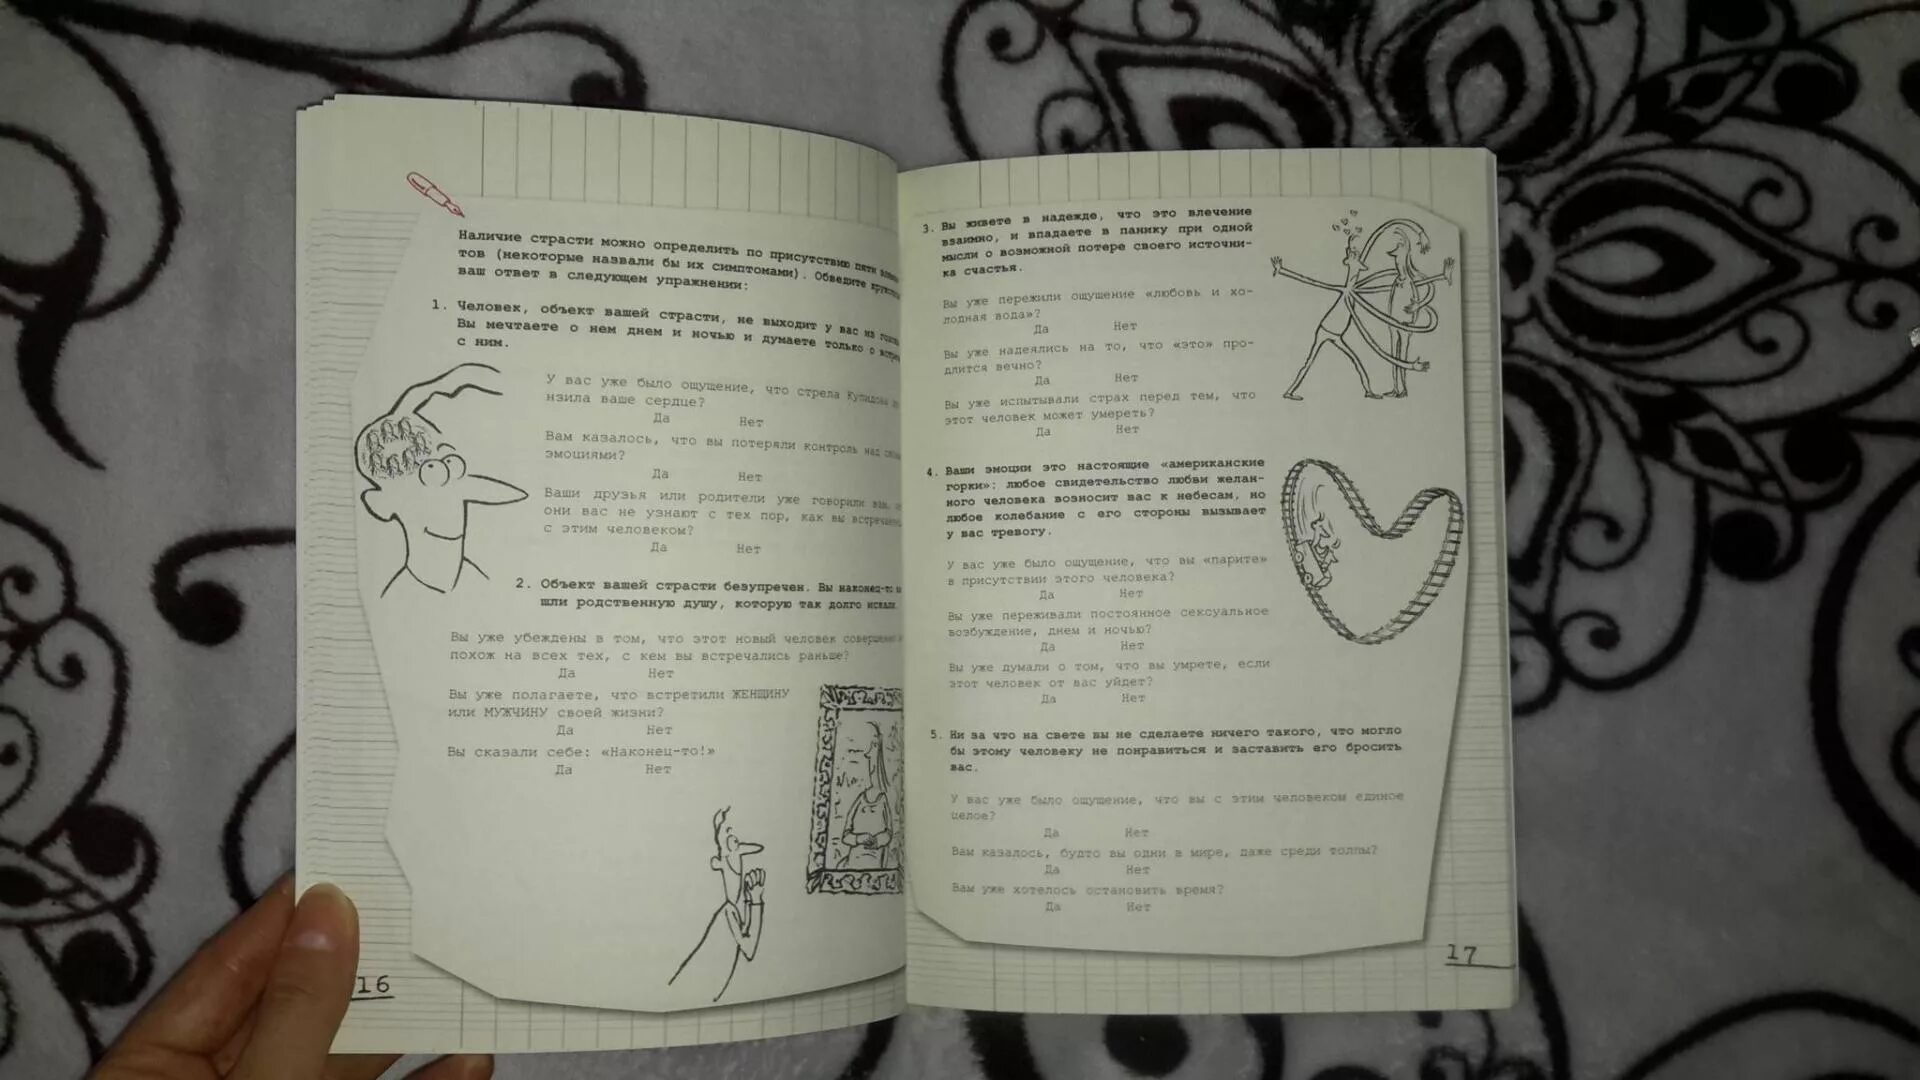 Наличие страсти можно определить по присутствию пяти
тов (некоторые назвали бы их симптомами). Обведите
ваш ответ в следующем упражнении:
1. Человек, объект вашей страсти, не выходит у вас из
Вы мечтаете о нем днем и ночью и думаете только о
с ним.
У вас уже было ощущение, что стрела Купидона
нзила ваше сердце?
Да Нет
Вам казалось, что вы потеряли контроль над
эмоциями?
Да Нет
Ваши друзья или родители уже говорили вам,
они вас не узнают с тех пор, как вы
с этим человеком?
Да Нет
2. Объект вашей страсти безупречен. Вы наконец-то
шли родственную душу, которую так долго искали.
Вы уже убеждены в том, что этот новый человек
похож на всех тех, с кем вы встречались раньше?
Да Нет
Вы уже полагаете, что встретили ЖЕНЩИНУ
или МУЖЧИНУ своей жизни?
Да Нет
Вы сказали себе: «Наконец-то!»
Да Нет
16
3. Вы живете в надежде, что это влечение
взаимно, и впадаете в панику при одной
мысли о возможной потере своего источни-
ка счастья.
Вы уже пережили ощущение «любовь и хо-
лодная вода»?
Да Нет
Вы уже надеялись на то, что «это» про-
длится вечно?
Да Нет
Вы уже испытывали страх перед тем, что
этот человек может умереть?
Да Нет
4. Ваши эмоции это настоящие «американские
горки»: любое свидетельство любви желан-
ного человека возносит вас к небесам, но
любое колебание с его стороны вызывает
у вас тревогу.
У вас уже было ощущение, что вы «парите»
в присутствии этого человека?
Да Нет
Вы уже переживали постоянное сексуальное
возбуждение, днем и ночью?
Да Нет
Вы уже думали о том, что вы умрете, если
этот человек от вас уйдет?
Да Нет
5. Ни за что на свете вы не сделаете ничего такого, что могло
бы этому человеку не понравиться и заставить его бросить
вас.
У вас уже было ощущение, что вы с этим человеком единое
целое?
Да Нет
Вам казалось, будто вы одни в мире, даже среди толпы?
Да Нет
Вам уже хотелось остановить время?
Да Нет
17